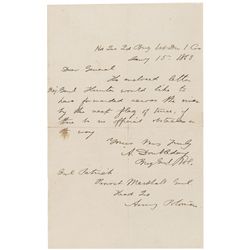 Hd Qrs 3d Div 1st Corps
Jany 15th 1863
Dear General
The enclosed letter
Maj. Genl Hunter would like to
have forwarded across the river
by the next flag of truce, if
there is no official obstacle in
the way
Yours Very Truly
A. Doubleday
Brig Genl Vols.
Genl Patrick
Provost Marshall Genl
Head Qrs
Army Potomac